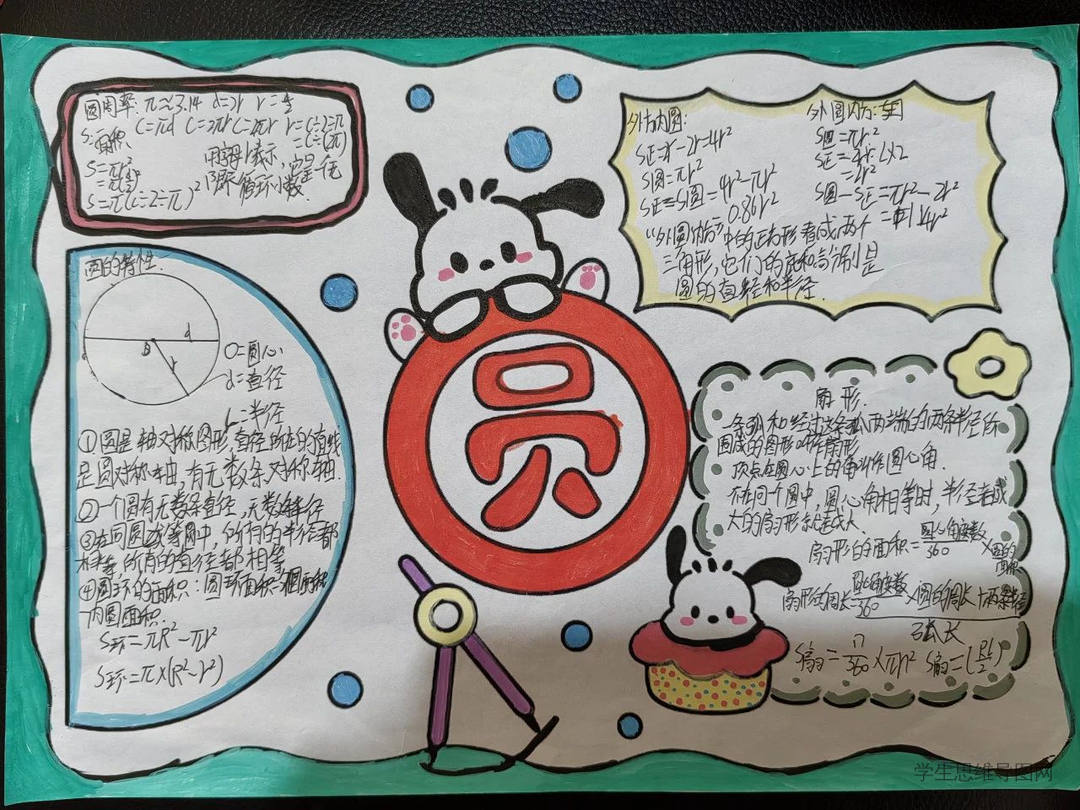 圆周率: π≈3.14 d=2r r=d/2
S:面积 C=πd C=2πr
S=πr²
S=π(C÷2÷π)²
用字母π表示,它是一个
无限不循环小数.
外方内圆:
S正=2r·2r=4r²
S圆=πr²
S正-S圆=4r²-πr²
0.86r²
外圆内方:
S圆=πr²
=2r²
S圆-S正=πr²-2r²
=1.14r²
“外圆内方”中的正方形看成两个
三角形,它们的底和高分别是
圆的直径和半径.
圆的特性.
d
r
O=圆心
d=直径
r=半径
①圆是轴对称图形,直径所在的直线
是圆对称轴.有无数条对称轴.
②一个圆有无数条直径,无数条半径
③在同圆或等圆中,所有的半径都
相等,所有的直径都相等
④圆环的面积:圆环面积=外圆面积-
内圆面积.
S环=πR²-πr²
S环=π×(R²-r²)
圆
扇形.
一条弧和经过这条弧两端的两条半径所
围成的图形叫作扇形
顶点在圆心上的角叫作圆心角.
在同一个圆中,圆心角相等时,半径越
大的扇形就越大.
扇形的面积=圆心角度数/360×圆的面积
扇形的周长=圆心角度数/360×圆的周长+两条半径
弧长
S扇=n/360×πr²
学生思维导图网